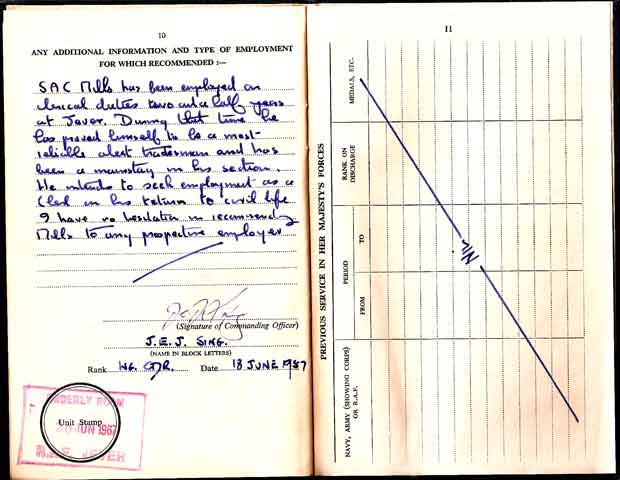 10
ANY ADDITIONAL INFORMATION AND TYPE OF EMPLOYMENT
FOR WHICH RECOMMENDED :—
SAC Mills has been employed on
clerical duties two and a half years
at Jever. During that time he
has proved himself to be a most
reliable alert tradesman and has
been a mainstay in his section.
He intends to seek employment as a
Clerk in his return to civil life
I have no hesitation in recommending
Mills to any prospective employer
(Signature of Commanding Officer)
J.E.J. SING.
(NAME IN BLOCK LETTERS)
Rank WG. CDR. Date 18 JUNE 1957
ORDERLY ROOM
Unit Stamp
JUN 1957
JEVER
11
PREVIOUS SERVICE IN HER MAJESTY'S FORCES
NAVY, ARMY (SHOWING CORPS)
OR R.A.F.
PERIOD
FROM
TO
RANK ON
DISCHARGE
MEDALS, ETC.
Nil